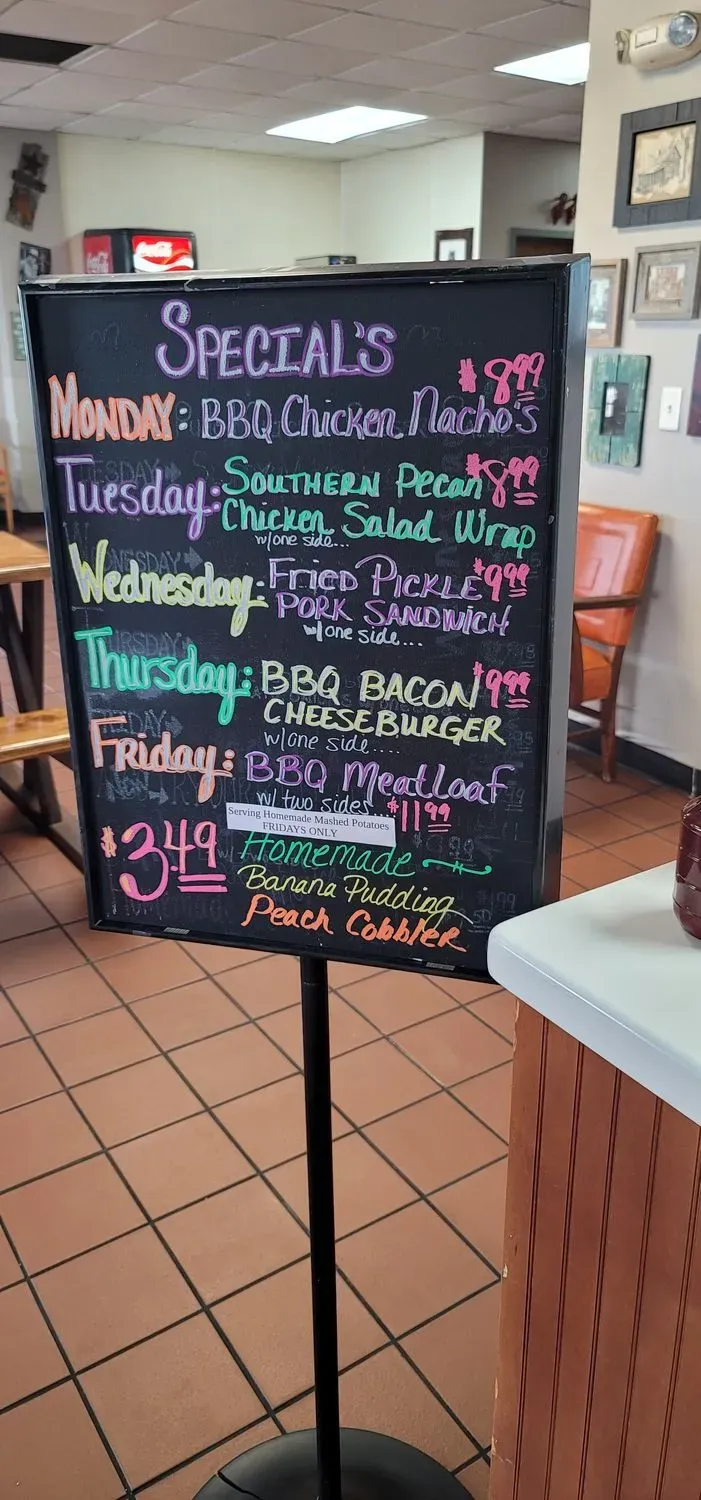 Coca-Cola
Coca-Cola
SPECIAL'S
$8.99
MONDAY: BBQ Chicken Nacho's
Tuesday: SOUTHERN Pecan $8.99
Chicken Salad Wrap
w/one side...
Wednesday: FRIED PICKLE $9.99
PORK SANDWICH
w/one side...
Thursday: BBQ BACON $9.99
CHEESEBURGER
w/one side....
Friday: BBQ Meatloaf
w/ two sides... $11.99
Serving Homemade Mashed Potatoes
FRIDAYS ONLY
$3.49 Homemade
Banana Pudding
Peach Cobbler